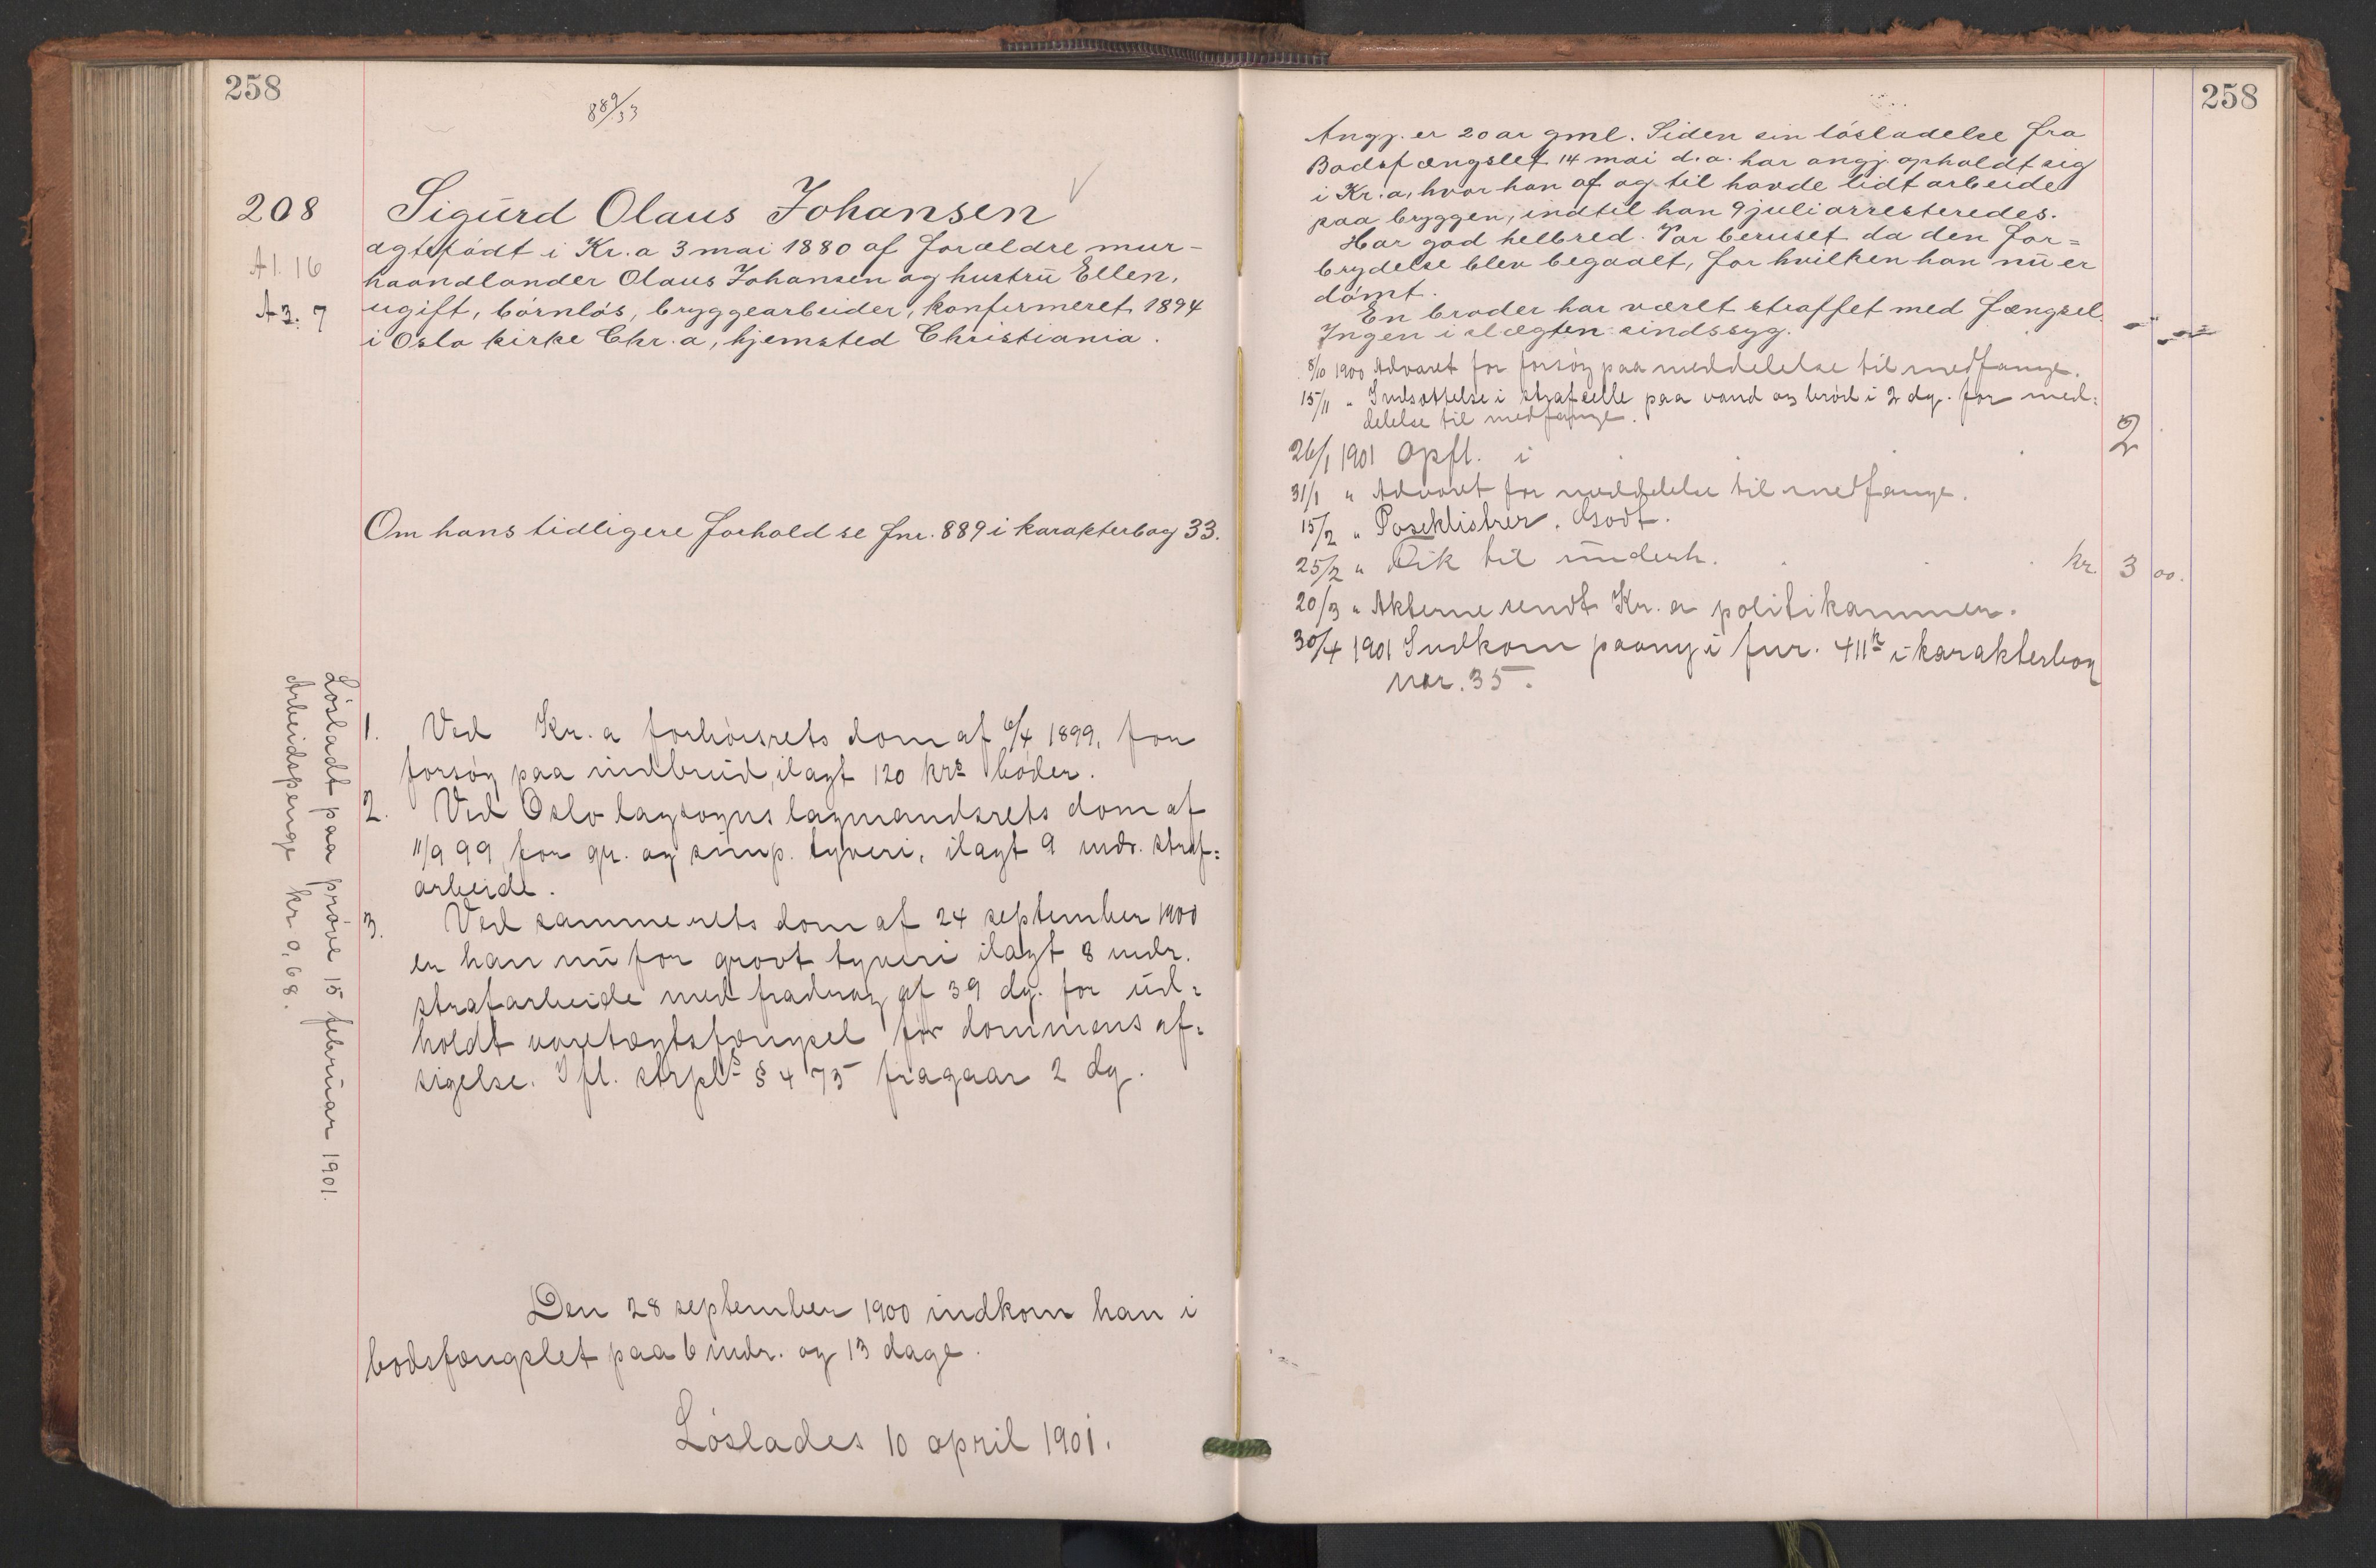 258
889/33
208
A1. 16
A3. 7
Sigurd Olaus Johansen
ægtefødt i Kr.a 3 mai 1880 af forældre mur-
haandlanger Olaus Johansen og hustru Ellen,
ugift, børnløs, bryggearbeider, konfirmeret 1894
i Oslo kirke Chr.a, hjemsted Christiania.
Om hans tidligere forhold se fnr. 889 i karakterbog 33.
Løsladt paa prøve 15 februar 1901.
Arbeidspenge kr 9,68.
1. Ved Kr.a forhørsrets dom af 6/4 1899, for
forsøg paa indbrud, ilagt 120 krs bøder.
2. Ved Oslo lagsogns lagmandsrets dom af
11/9 99 for gr. og simp. tyveri, ilagt 9 mdr. straf=
arbeide.
3. Ved samme rets dom af 24 september 1900
er han nu for grovt tyveri ilagt 8 mdr.
strafarbeide med fradrag af 39 dg. for ud=
holdt varetægtsfængsel før dommens af=
sigelse. Ifl. strpl § 475 fragaar 2 dg.
Den 28 september 1900 indkom han i
bodsfængslet paa 6 mdr. og 13 dage.
Løslades 10 april 1901.
258
Angj. er 20 aar gml. Siden sin løsladelse fra
Bodsfængslet 14 mai d.a. har angj. opholdt sig
i Kr.a, hvor han af og til havde lidt arbeide
paa bryggen, indtil han 9 juli arresteredes.
Har god helbred. Var beruset da den for=
brydelse blev begaaet, for hvilken han nu er
dømt.
En broder har været straffet med fængsel.
Ingen i slægten sindssyg.
8/10 1900 Advaret for forsøg paa meddelelse til medfange.
15/11 " Indsættelse i strafcelle paa vand og brød i 2 dg. for med=
delelse til medfange. 2
26/1 1901 Opfl. i
31/1 " Advaret for meddelelse til medfange.
15/2 " Poseklistrer. Godt.
25/2 " Fik til underh. kr. 3 00.
20/3 " Akterne sendt Kr.a politikammer.
30/4 1901 Indkom paany i fnr. 411 i karakterbog
nor. 35.